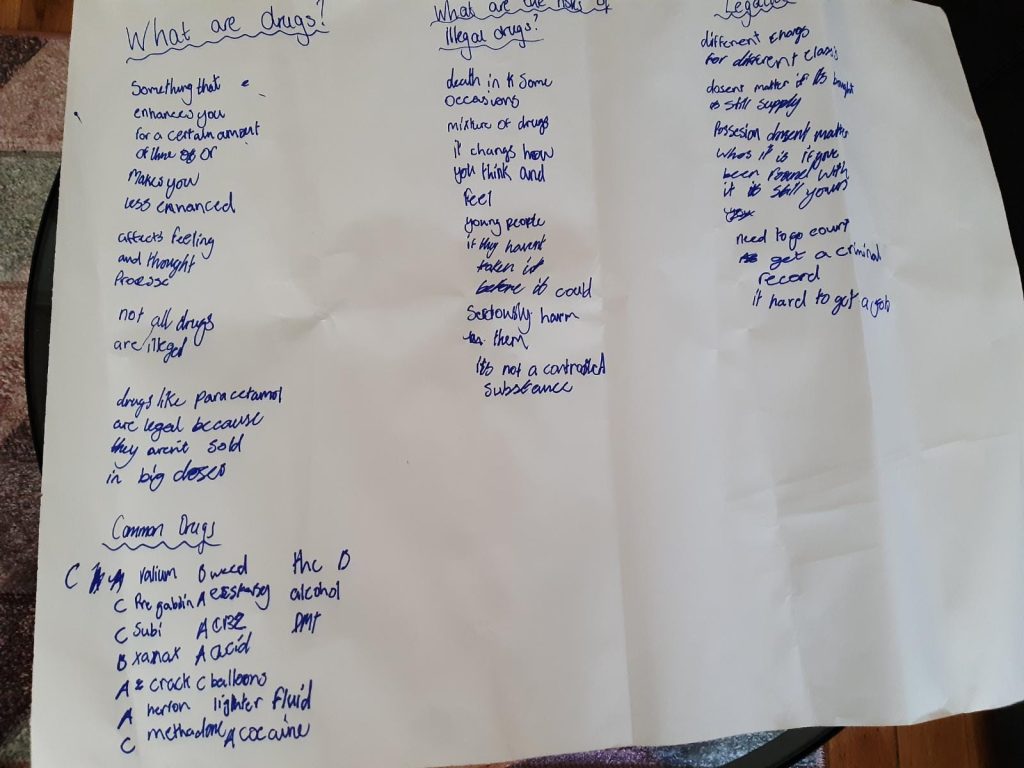 What are drugs?
Something that
enhances you
for a certain amount
of time or
Makes you
less enhanced
affects feeling
and thought
Processe
not all drugs
are illegal
drugs like paracetamol
are legal because
they aren't sold
in big doses
Common Drugs
C valium B weed thc B
C Pregablin A alcohol
C Subi A DMT
B xanax A acid
A crack C balloons
A herion lighter fluid
C methadone A cocaine
What are the risks of
illegal drugs?
death in some
occasions
mixture of drugs
it changs how
you think and
feel
young people
if they havent
taken it
before it could
Seriously harm
them
its not a controlled
Substance
different chargs
for different class
dosent matter if its bought
is still supply
Possesion dosent matter
whos it is if youve
been found with
it is still yours
need to go court
get a criminal
record
it hard to get a job